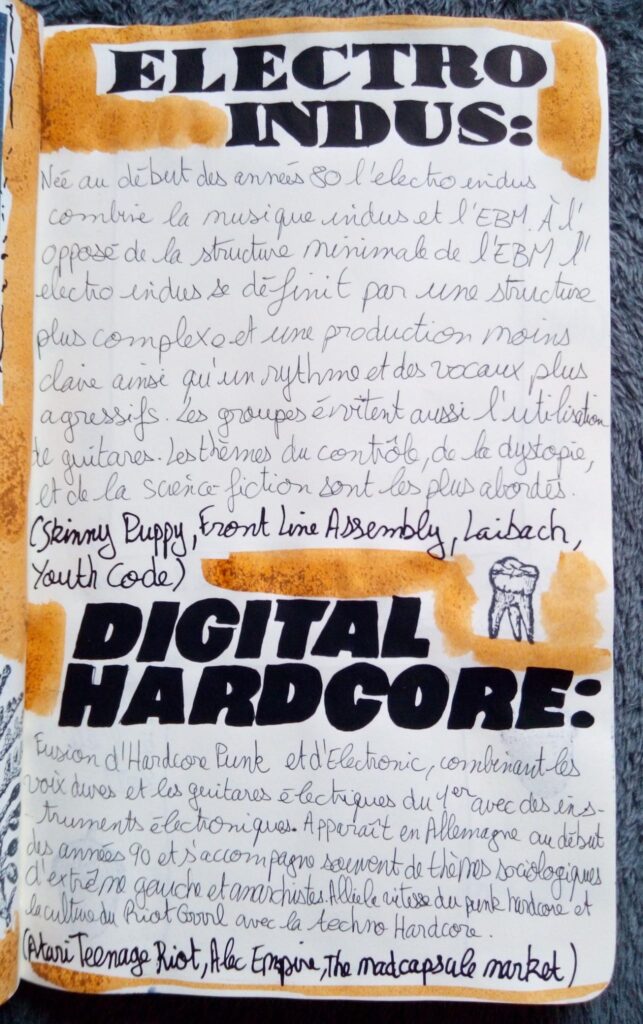 ELECTRO
INDUS:
Née au début des années 80 l'electro indus
combine la musique indus et l'EBM. À l'
opposé de la structure minimale de l'EBM l'
electro indus se définit par une structure
plus complexe et une production moins
claire ainsi qu'un rythme et des vocaux plus
agressifs. Les groupes évitent aussi l'utilisation
de guitares. Les thèmes du contrôle, de la dystopie,
et de la science-fiction sont les plus abordés.
(Skinny Puppy, Front Line Assembly, Laibach,
Youth Code)
DIGITAL
HARDCORE:
Fusion d'Hardcore Punk et d'Electronic, combinant les
voix dures et les guitares électriques du 1er avec des ins-
truments électroniques. Apparaît en Allemagne au début
des années 90 et s'accompagne souvent de thèmes sociologiques
d'extrême gauche et anarchistes. Allie la vitesse du punk hardcore et
la culture du Riot Grrrl avec la techno Hardcore.
(Atari Teenage Riot, Alec Empire, The madcapsule market)